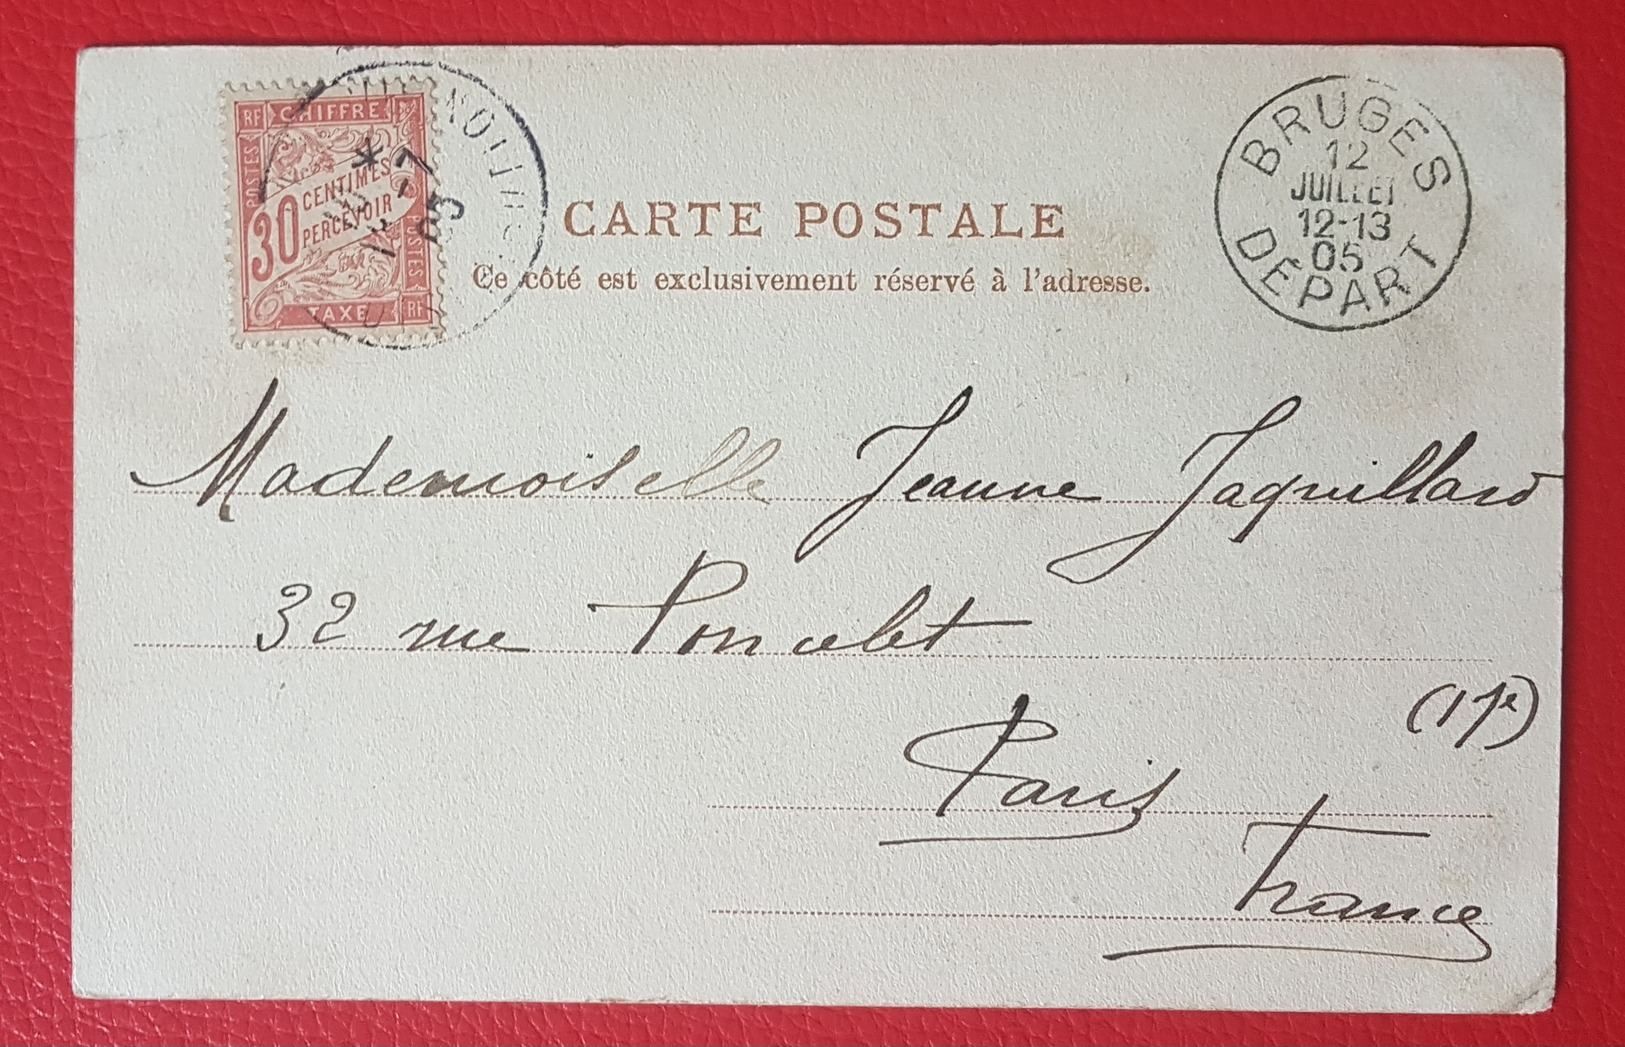 RF CHIFFRE
POSTES
30 CENTIMES
PERCEVOIR
POSTES
TAXE RF
BRUGES
12
JUILLET
12-13
05
DÉPART
CARTE POSTALE
Ce côté est exclusivement réservé à l'adresse.
Mademoiselle Jeanne Jaquillard
32 rue Poncelet
Paris
France